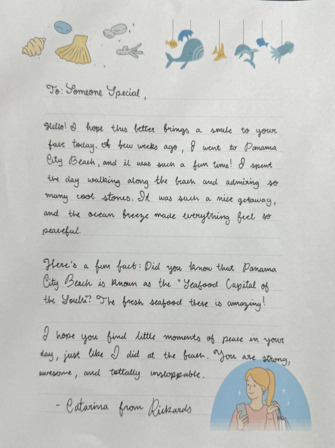 To: Someone Special,
Hello! I hope this letter brings a smile to your
face today. A few weeks ago, I went to Panama
City Beach, and it was such a fun time! I spent
the day walking along the beach and admiring so
many cool stones. It was such a nice getaway,
and the ocean breeze made everything feel so
peaceful.
Here's a fun fact: Did you know that Panama
City Beach is known as the "Seafood Capital of
the South"? The fresh seafood there is amazing!
I hope you find little moments of peace in your
day, just like I did at the beach. You are strong,
awesome, and tottally unstoppable.
- Catarina from Rickards